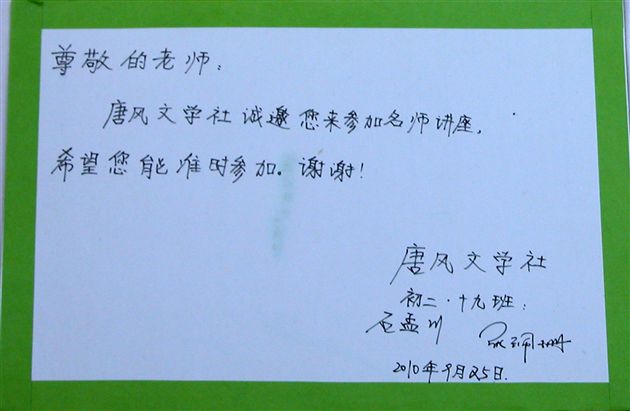 尊敬的老师：
唐风文学社诚邀您来参加名师讲座，
希望您能准时参加。谢谢！
唐风文学社
初二·十九班：
石孟川
2010年9月25日.